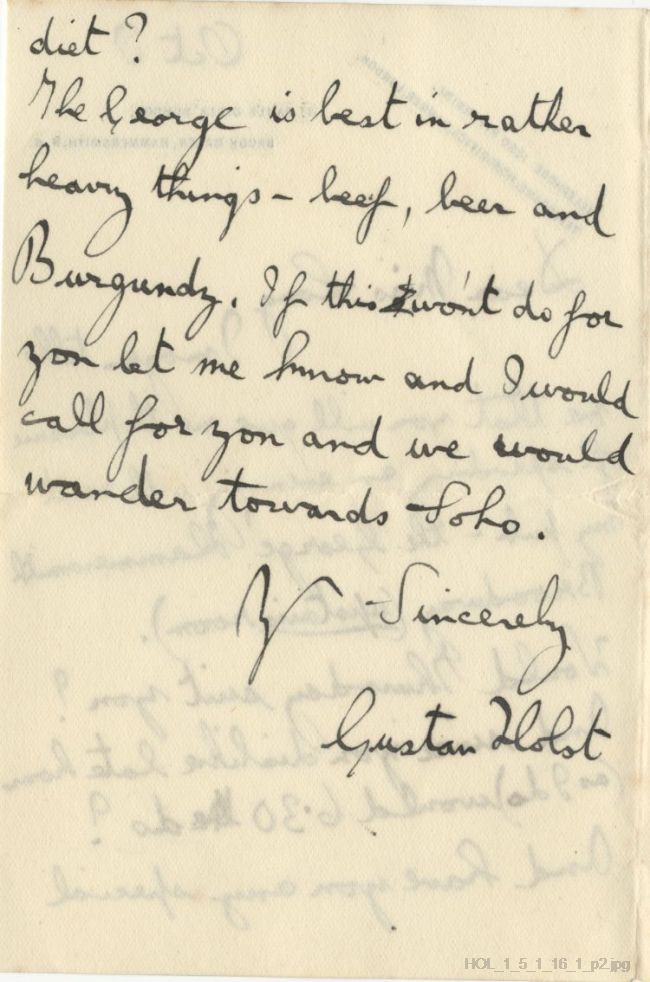 diet?
The George is best in rather
heavy things - beef, beer and
Burgundy. If this won't do for
you let me know and I would
call for you and we would
wander towards Soho.
Yr Sincerely
Gustav Holst
HOL_1_5_1_16_1_p2.jpg